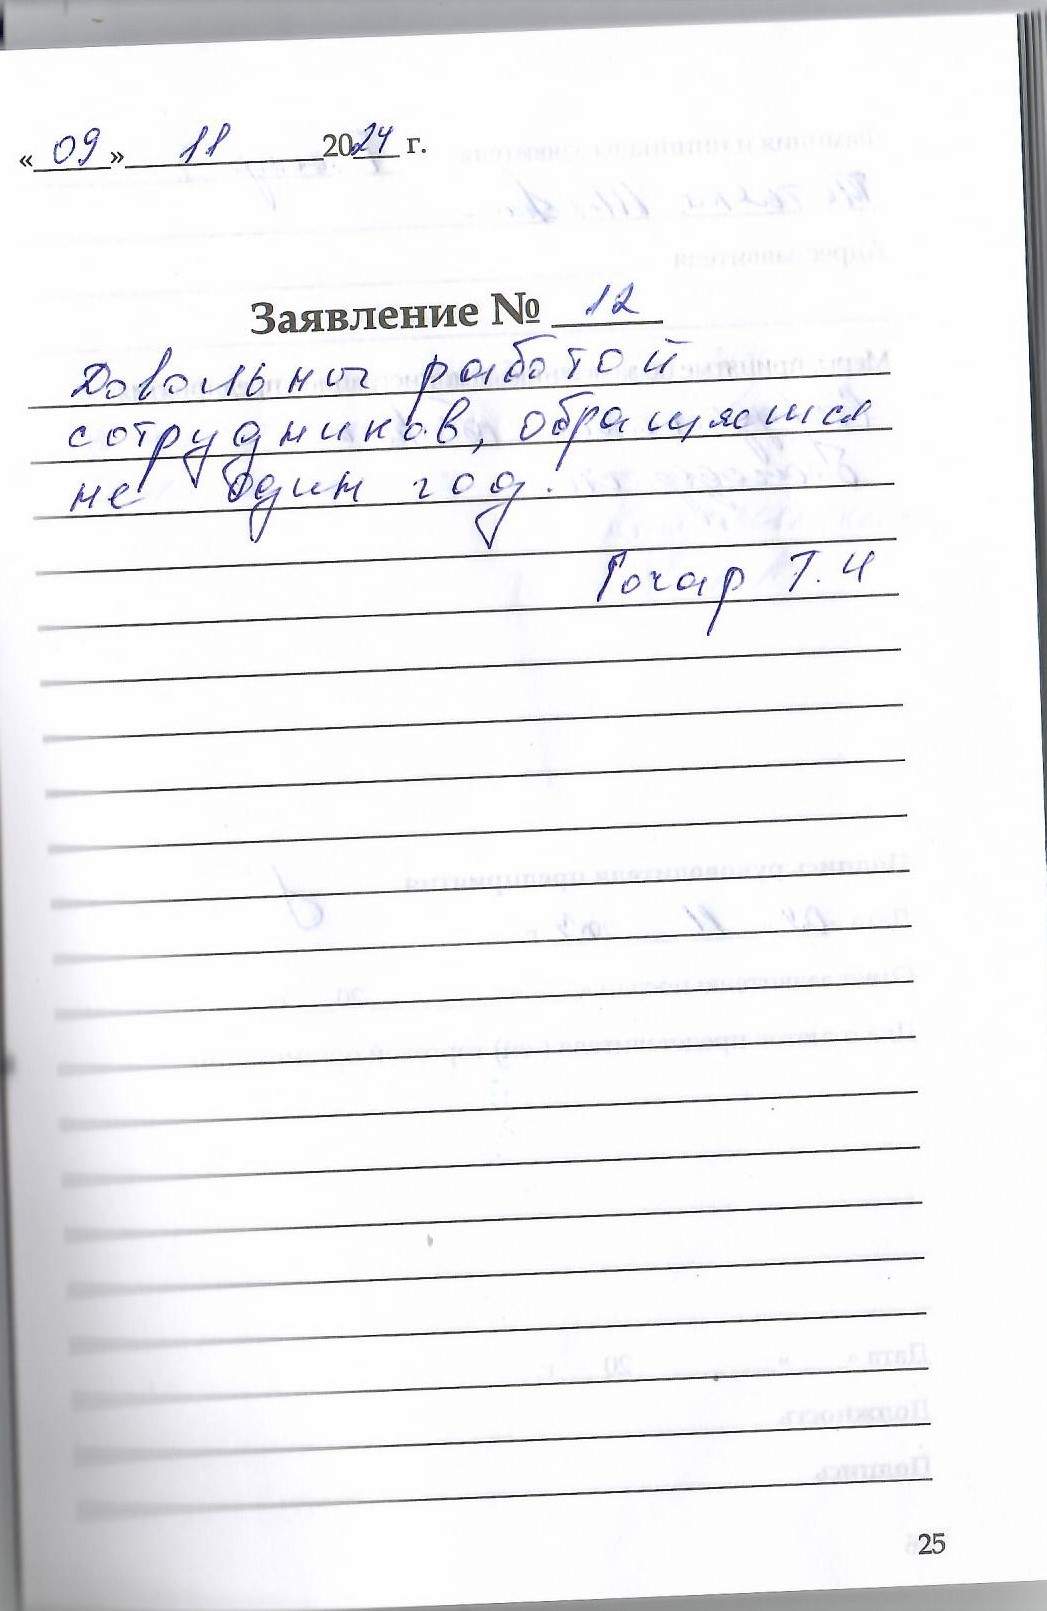 «09» 11 2024 г.
Заявление № 12
Довольны работой
сотрудников, обращаемся
не один год.
Гочар Т. И
25